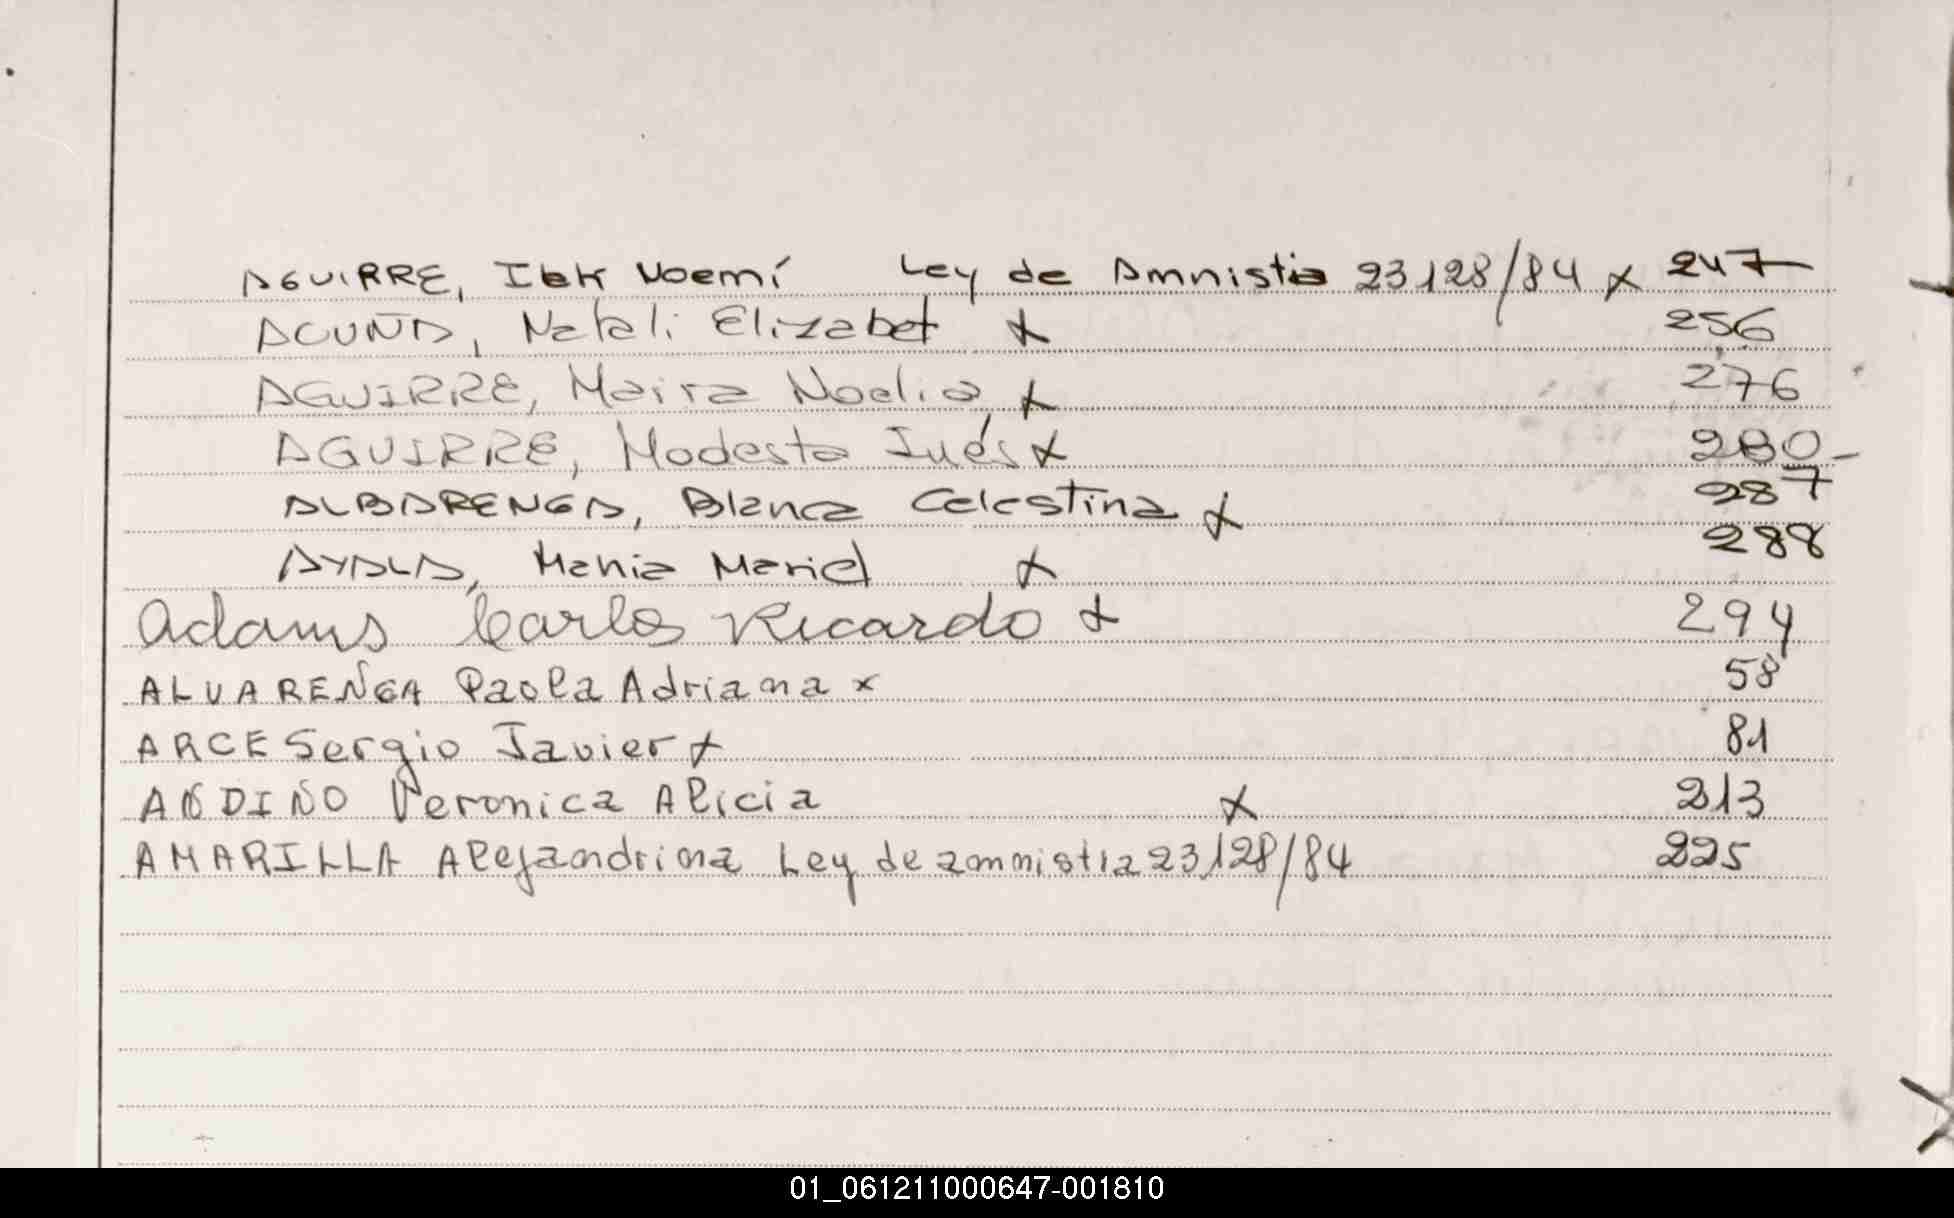 AGUIRRE, Noemí Ley de Amnistia 23128/84 x 247
ACUÑA, Natali Elizabet x 256
AGUIRRE, Maira Noelia x 276
AGUIRRE, Modesta Inés x 280-
ALBARENGA, Blanca Celestina x 287
AYALA, Mariel x 288
Adams Carlos Ricardo x 294
ALVAREÑGA Paola Adriana x 58
ARCE Sergio Javier x 81
Veronica Alicia x 213
AMARILLA Alejandrina Ley de amnistia 23128/84 225
01_061211000647-001810